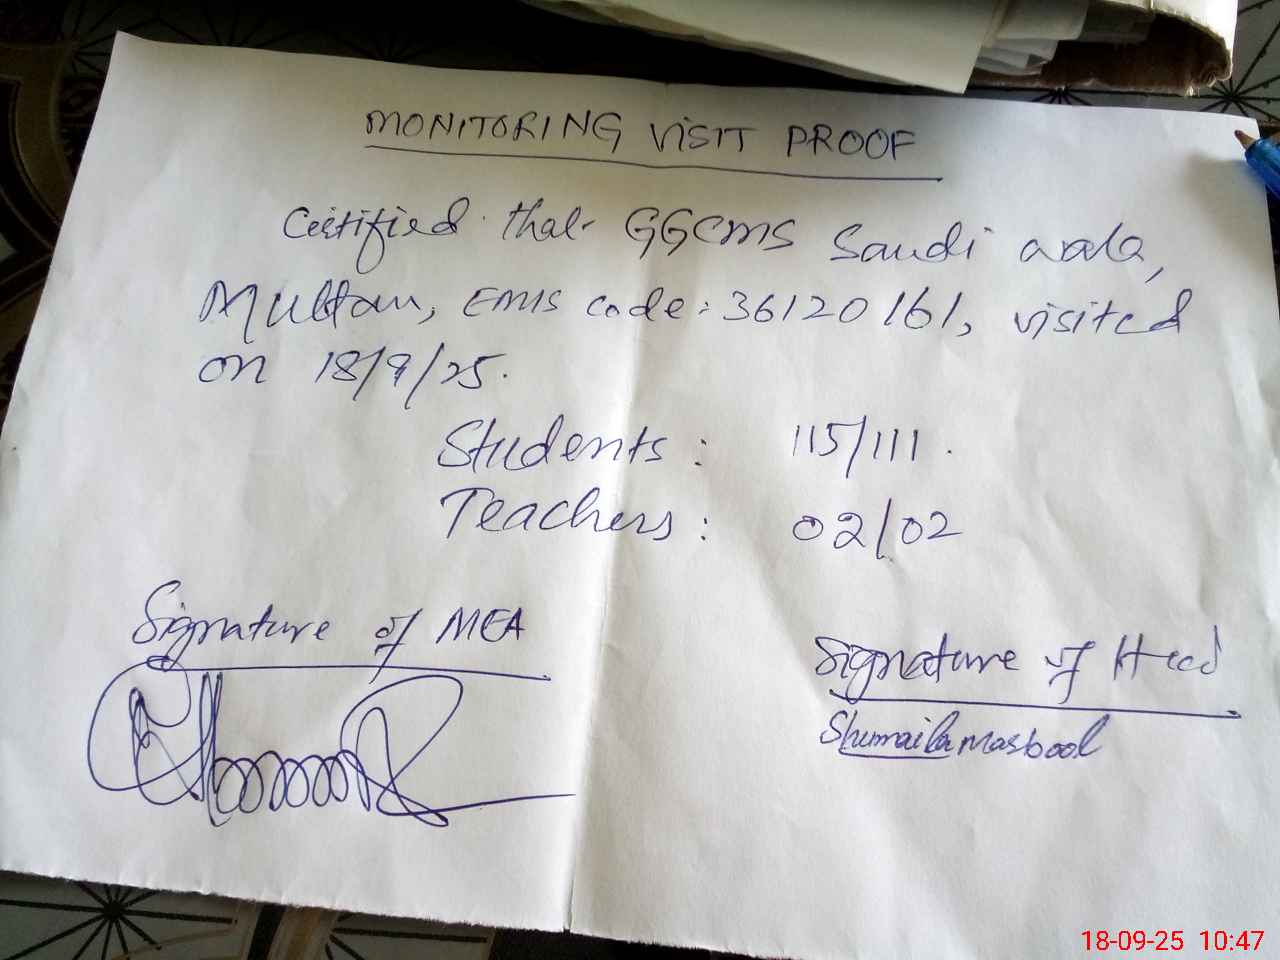 MONITORING VISIT PROOF
Certified that GGCMS Saudi wala,
Multan, EMIS code: 36120161, visited
on 18/9/25.
Students: 115/111.
Teachers: 02/02
Signature of MEA
Signature of Head
Shumaila Maqbool
18-09-25 10:47